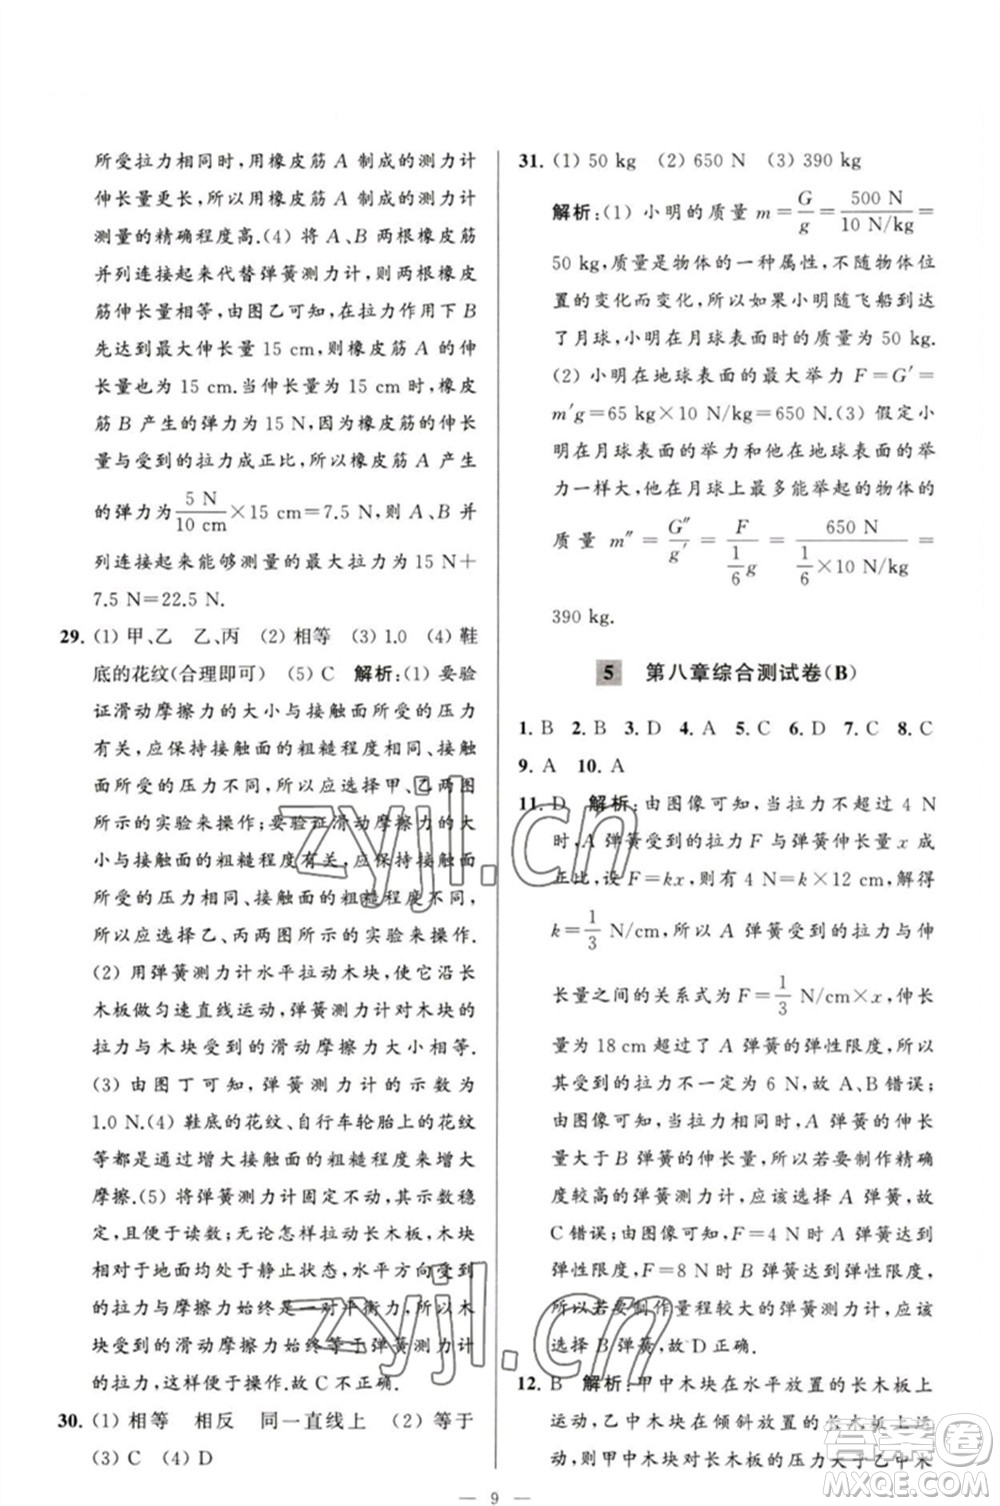 所受拉力相同时,用橡皮筋 A 制成的测力计
伸长量更长,所以用橡皮筋 A 制成的测力计
测量的精确程度高.(4) 将 A、B 两根橡皮筋
并列连接起来代替弹簧测力计,则两根橡皮
筋伸长量相等,由图乙可知,在拉力作用下 B
先达到最大伸长量 15 cm,则橡皮筋 A 的伸
长量也为 15 cm.当伸长量为 15 cm 时,橡皮
筋 B 产生的弹力为 15 N,因为橡皮筋的伸长
量与受到的拉力成正比,所以橡皮筋 A 产生
的弹力为 5 N/10 cm ×15 cm=7.5 N,所以 A、B 并
列连接起来能够测量的最大拉力为 15 N+
7.5 N=22.5 N.
29. (1) 甲、乙 乙、丙 (2) 相等 (3) 1.0 (4) 鞋
底的花纹(合理即可) (5) C 解析:(1) 要验
证滑动摩擦力的大小与接触面所受的压力
有关,应保持接触面的粗糙程度相同、接触
面所受的压力不同,所以应选择甲、乙两图
所示的实验来操作;要验证滑动摩擦力的大
小与接触面的粗糙程度有关,应保持接触面
所受的压力相同、接触面的粗糙程度不同,
所以应选择乙、丙两图所示的实验来操作.
(2) 用弹簧测力计水平拉动木块,使它沿长
木板做匀速直线运动,弹簧测力计对木块的
拉力与木块受到的滑动摩擦力大小相等.
(3) 由图丁可知,弹簧测力计的示数为
1.0 N.(4) 鞋底的花纹、自行车轮胎上的花纹
等都是通过增大接触面的粗糙程度来增大
摩擦.(5) 将弹簧测力计固定不动,其示数稳
定,且便于读数;无论怎样拉动长木板,木块
相对于地面均处于静止状态,水平方向受到
的拉力与摩擦力始终是一对平衡力,所以木
块受到的滑动摩擦力始终等于弹簧测力计
的拉力,这样便于操作.故 C 不正确.
30. (1) 相等 相反 同一直线上 (2) 等于
(3) C (4) D
31. (1) 50 kg (2) 650 N (3) 390 kg
解析:(1) 小明的质量 m=G/g=500 N/10 N/kg=
50 kg,质量是物体的一种属性,不随物体位
置的变化而变化,所以如果小明随飞船到达
了月球,他在月球表面时的质量为 50 kg.
(2) 小明在地球表面的最大举力 F=G′=
m′g=65 kg×10 N/kg=650 N.(3) 假定小
明在月球表面的举力和他在地球表面的举
力一样大,他在月球上最多能举起的物体的
质量 m″=G″/g′=F/(1/6 g)=650 N/(1/6×10 N/kg)=
390 kg.
5 第八章综合测试卷(B)
1. B 2. B 3. D 4. A 5. C 6. D 7. C 8. C
9. A 10. A
11. D 解析:由图像可知,当拉力不超过 4 N
时,A 弹簧受到的拉力 F 与弹簧伸长量 x 成
正比,设 F=kx,则有 4 N=k×12 cm,解得
k=1/3 N/cm,所以 A 弹簧受到的拉力与伸
长量之间的关系式为 F=1/3 N/cm×x,伸长
量为 18 cm 超过了 A 弹簧的弹性限度,所以
其受到的拉力不一定为 6 N,故 A、B 错误;
由图像可知,当拉力相同时,A 弹簧的伸长
量大于 B 弹簧的伸长量,所以若要制作精确
度较高的弹簧测力计,应该选择 A 弹簧,故
C 错误;由图像可知,F=4 N 时 A 弹簧达到
弹性限度,F=8 N 时 B 弹簧达到弹性限度,
所以若要制作量程较大的弹簧测力计,应该
选择 B 弹簧,故 D 正确.
12. B 解析:甲中木块在水平放置的长木板上
运动,乙中木块在倾斜放置的长木板上运
动,则甲中木块对长木板的压力大于乙中木
— 9 —
zyjl.cn
zyjl.cn
答案圈
MXQE.COM